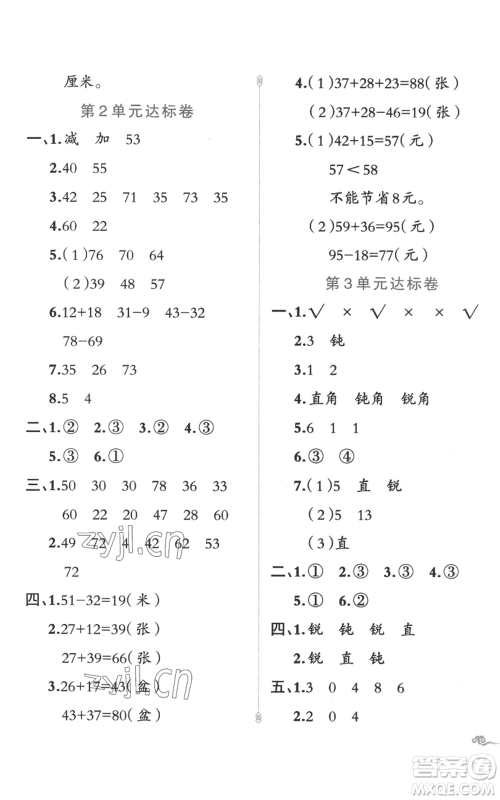 厘米。
第2单元达标卷
一、1.减 加 53
2.40 55
3.42 25 71 35 73 35
4.60 22
5.(1)76 70 64
(2)39 48 57
6.12+18 31-9 43-32
78-69
7.35 26 73
8.5 4
二、1.② 2.③ 3.② 4.③
5.③ 6.①
三、1.50 30 30 78 33
60 22 20 47 58
2.49 72 4 65 24
72
四、1.51-32=19(米)
2.27+12=39(张)
27+39=66(张)
3.26+17=43(盆)
43+37=80(盆)
4.(1)37+28+23=88(张)
(2)37+28-46=19(张)
5.(1)42+15=57(元)
57<58
不能节省8元。
(2)59+36=95(元)
95-18=77(元)
第3单元达标卷
一、1.√ × √ × × √
2.3 钝
3.1 2
4.直角 钝角 锐角
5.6 1 1
6.③ ④
7.(1)5 直 锐
(2)5 13
(3)直
二、1.① 2.③ 3.③ 4.③
5.① 6.②
四、1.锐 钝 锐 直
锐 直 钝
五、1.3 0 4 8 6
2.2 0 4
zyjl.cn
zyjl.cn
答案圈
MXQE.COM